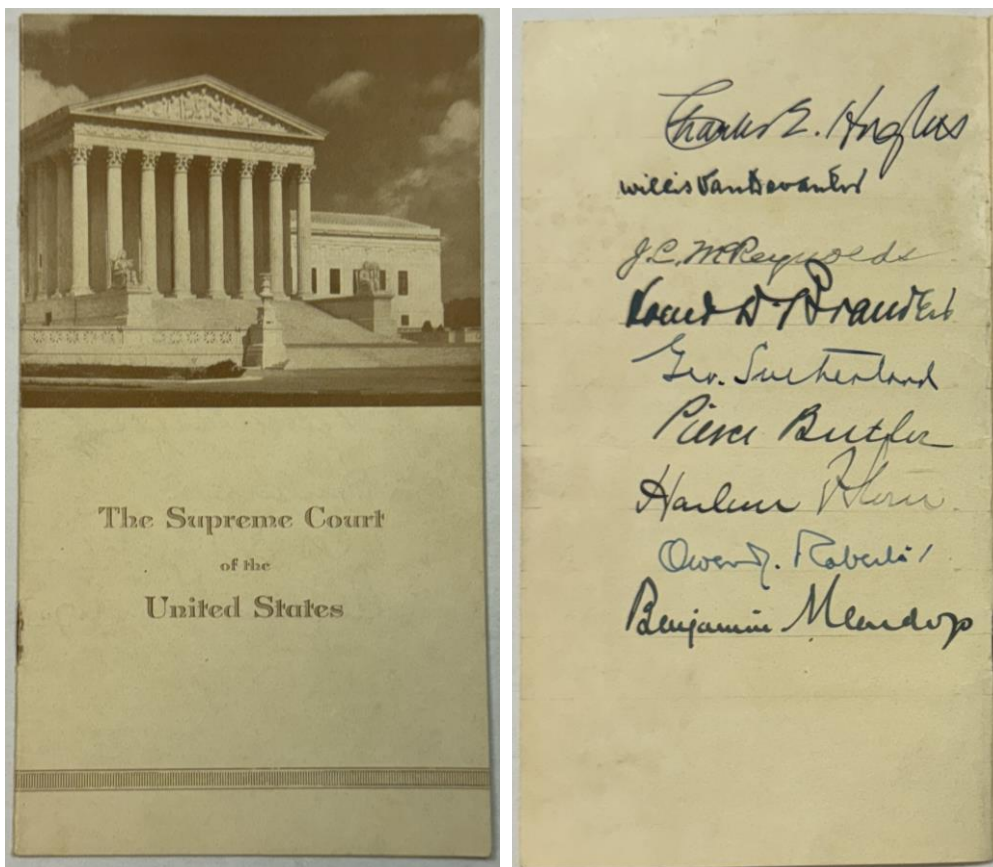 The Supreme Court
of the
United States
Charles E. Hughes
Willis Van Devanter
J.C. McReynolds
Louis D. Brandeis
Geo. Sutherland
Pierce Butler
Harlan F. Stone
Owen J. Roberts
Benjamin N. Cardozo